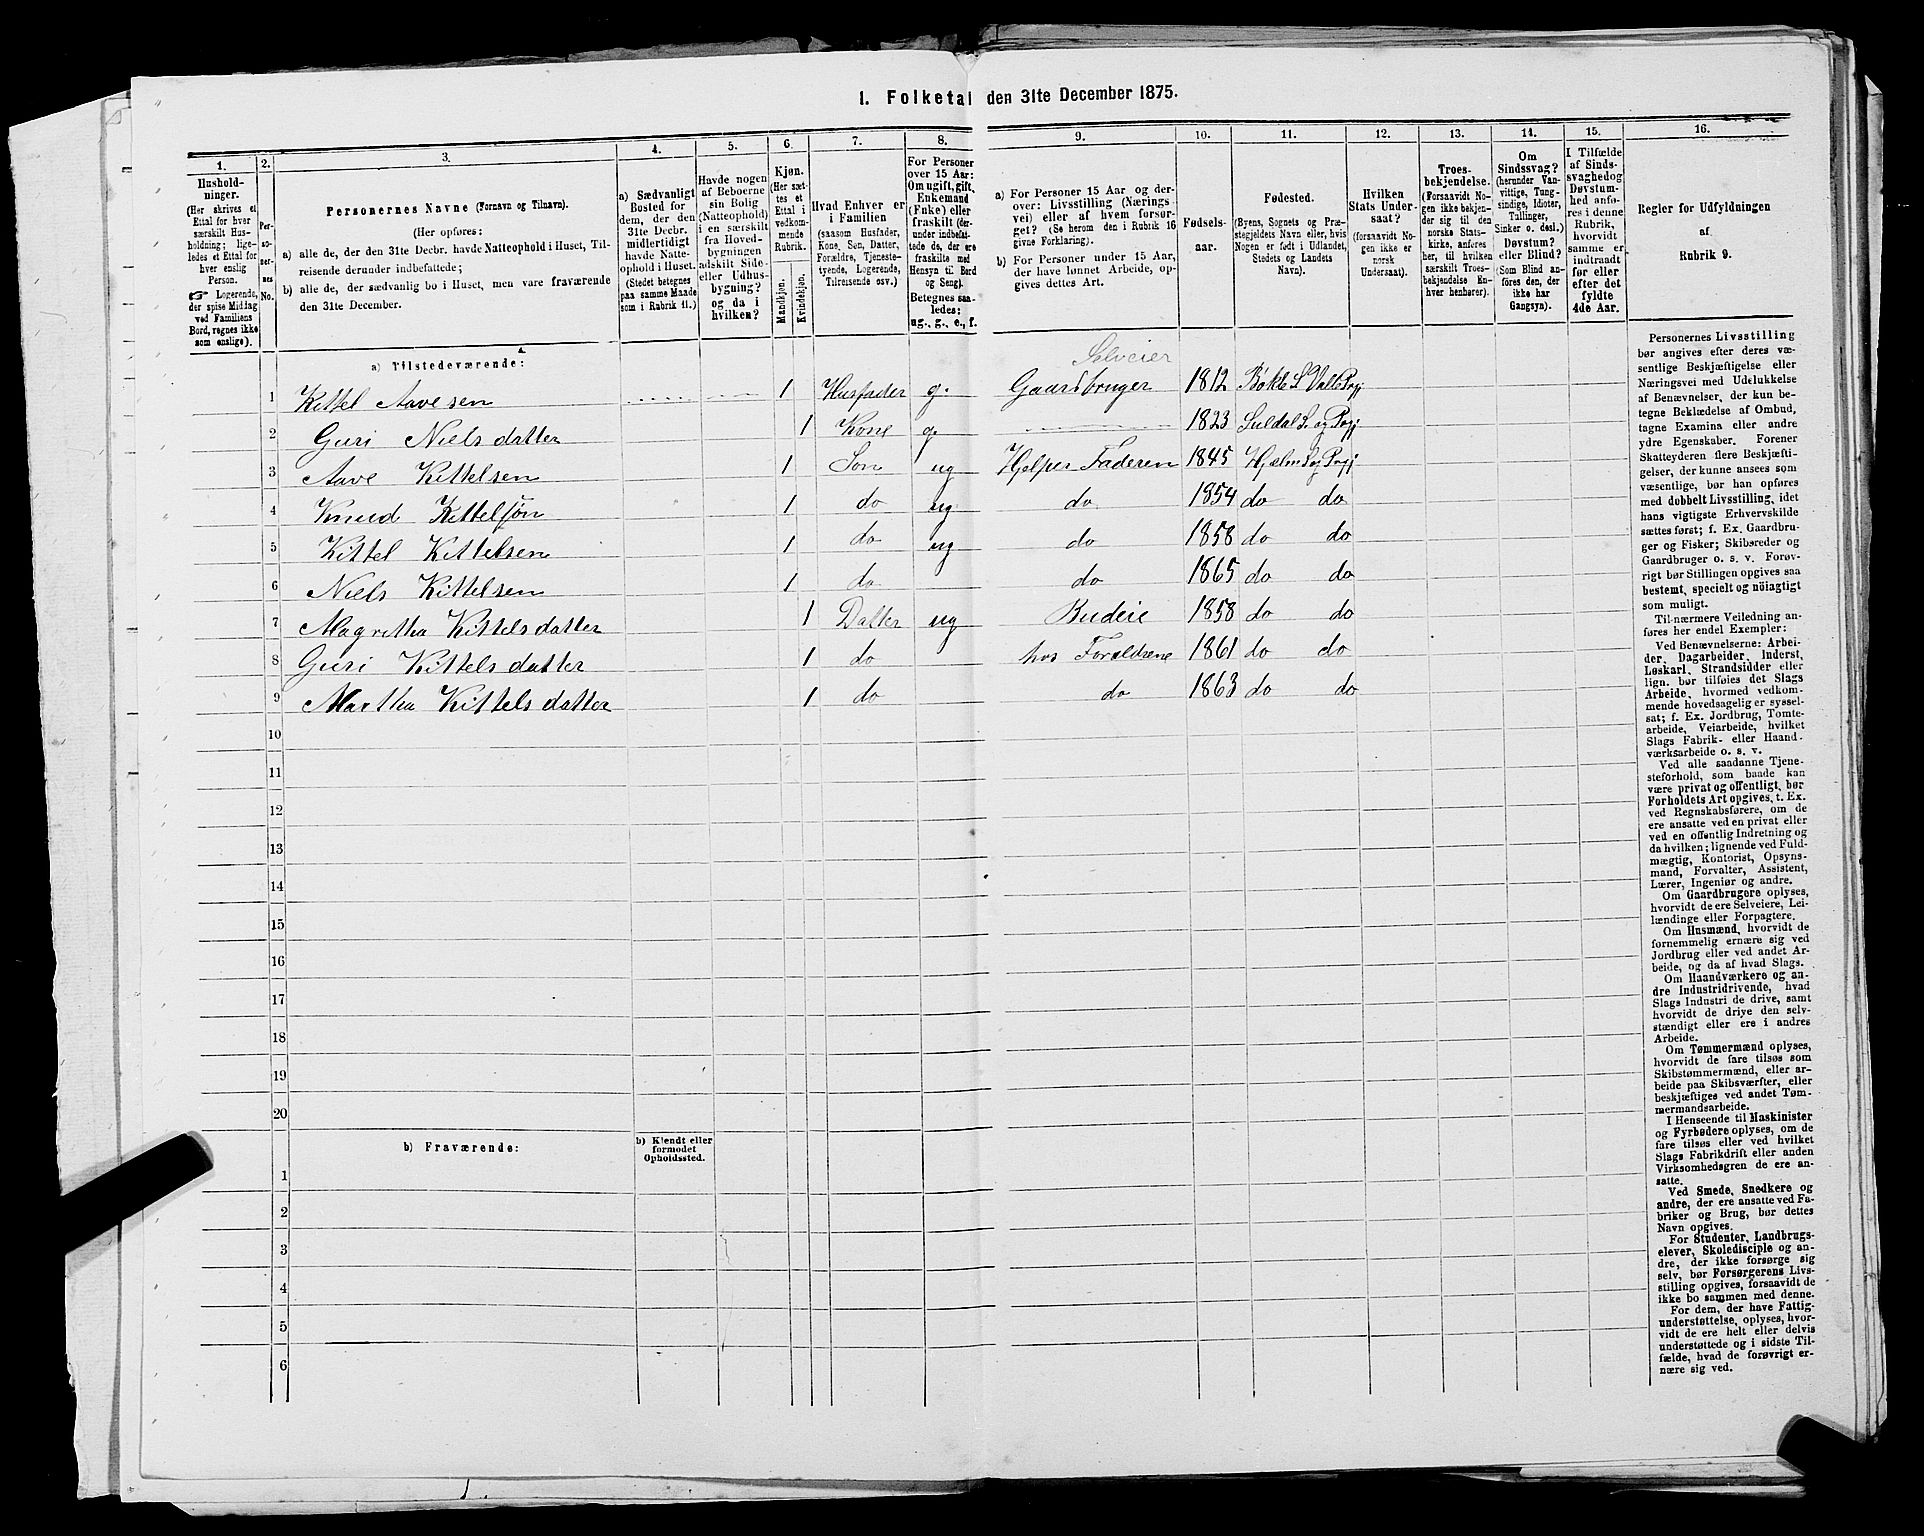 1. Folketal den 31te December 1875.
1. 2. 3. 4. 5. 6. 7. 8. 9. 10. 11. 12. 13. 14. 15. 16.
Hushold-
ninger.
(Her skrives et
Ettal for hver
særskilt Hus-
holdning; lige-
ledes et Ettal for
hver enslig
Person.
☞ Logerende,
der spise Middag
ved Familiens
Bord, regnes ikke
som enslige).
Per-
so-
ner-
nes
No.
Personernes Navne (Fornavn og Tilnavn).
(Her opføres:
a) alle de, der den 31te Decbr. havde Natteophold i Huset, Til-
reisende derunder indbefattede;
b) alle de, der sædvanlig bo i Huset, men vare fraværende
den 31te December.
a) Sædvanligt
Bosted for
dem, der den
31te Decbr.
midlertidigt
havde Natte-
ophold i Huset.
(Stedet betegnes
paa samme Maade
som i Rubrik 11.)
Havde nogen
af Beboerne
sin Bolig
(Natteophold)
i en særskilt
fra Hoved-
bygningen
adskilt Side-
eller Udhus-
bygning?
og da i
hvilken?
Kjøn.
(Her sæt-
tes et
Ettal i
vedkom-
mende
Rubrik.
Mandkjøn.
Kvindekjøn.
Hvad Enhver er
i Familien
(saasom Husfader,
Kone, Søn, Datter,
Forældre, Tjeneste-
tyende, Logerende,
Tilreisende osv.)
For Personer
over 15 Aar:
Om ugift, gift,
Enkemand
(Enke) eller
fraskilt (der-
under indbefat-
tede de, der ere
fraskilte med
Hensyn til Bord
og Seng).
Betegnes saa-
ledes:
ug., g., e., f.
a) For Personer 15 Aar og der-
over: Livsstilling (Nærings-
vei) eller af hvem forsør-
get? (Se herom den i Rubrik 16
givne Forklaring).
b) For Personer under 15 Aar,
der have lønnet Arbeide, op-
gives dettes Art.
Fødsels-
aar.
Fødested.
(Byens, Sognets og Præ-
stegjeldets Navn eller, hvis
Nogen er født i Udlandet,
Stedets og Landets
Navn).
Hvilken
Stats Under-
saat?
(forsaavidt No-
gen ikke er
norsk
Undersaat).
Troes-
bekjendelse.
(Forsaavidt No-
gen ikke bekjen-
der sig til den
norske Stats-
kirke, anføres
her, til hvilken
særskilt Troes-
bekjendelse En-
hver henhører).
Om
Sindssvag?
(herunder Van-
vittige, Tung-
sindige, Idioter,
Tullinger,
Sinker o. desl.)
Døvstum?
eller Blind?
(Som Blind an-
føres den, der
ikke har
Gangsyn).
I Tilfælde
af Sinds-
svaghed og
Døvstum-
hed anfø-
res i denne
Rubrik,
hvorvidt
samme er
indtraadt
før eller
efter det
fyldte
4de Aar.
Regler for Udfyldningen
af
Rubrik 9.
a) Tilstedeværende:
Selveier
1 Kittel Aavesen 1 Husfader g. Gaardbruger 1812 Bøkle S Valle Prgj
2 Guri Nielsdatter 1 Kone g. 1823 Suldal S. og Prgj
3 Aave Kittelsen 1 Søn ug Hjelper Faderen 1845 Hjælm S og Prgj
4 Knud Kittelsøn 1 do ug do 1854 do do
5 Kittel Kittelsen 1 do ug do 1858 do do
6 Niels Kittelsen 1 do do 1865 do do
7 Magretha Kittelsdatter 1 Datter ug Budeie 1858 do do
8 Guri Kittelsdatter 1 do hos Forældrene 1861 do do
9 Martha Kittelsdatter 1 do do 1863 do do
10
11
12
13
14
15
16
17
18
19
20
b) Fraværende:
b) Kjendt eller
formodet
Opholdssted.
1
2
3
4
5
6
Personernes Livsstilling
bør angives efter deres væ-
sentlige Beskjæftigelse eller
Næringsvei med Udelukkelse
af Benævnelser, der kun be-
tegne Beklædelse af Ombud,
tagne Examina eller andre
ydre Egenskaber. Forener
Skatteyderen flere Beskjæfti-
gelser, der kunne ansees som
væsentlige, bør han opføres
med dobbelt Livsstilling, idet
hans vigtigste Erhvervskilde
sættes først; f. Ex. Gaardbru-
ger og Fisker; Skibsreder og
Gaardbruger o. s. v. Forøv-
rigt bør Stillingen opgives saa
bestemt, specielt og nöiagtigt
som muligt.
Til nærmere Veiledning an-
føres her endel Exempler:
Ved Benævnelserne: Arbei-
der, Dagarbeider, Inderst,
Løskarl, Strandsidder eller
lign. bør tilføies det Slags
Arbeide, hvormed vedkom-
mende hovedsagelig er syssel-
sat; f. Ex. Jordbrug, Tomte-
arbeide, Veiarbeide, hvilket
Slags Fabrik- eller Haand-
værksarbeide o. s. v.
Ved alle saadanne Tjene-
steforhold, som baade kan
være privat og offentligt, bør
Forholdets Art opgives, t. Ex.
ved Regnskabsførere, om de
ere ansatte ved en privat eller
ved en offentlig Indretning og
da hvilken; lignende ved Fuld-
mægtig, Kontorist, Opsyns-
mand, Forvalter, Assistent,
Lærer, Ingeniør og andre.
Om Gaardbrugere oplyses,
hvorvidt de ere Selveiere, Lei-
lændinge eller Forpagtere.
Om Husmænd, hvorvidt de
fornemmelig ernære sig ved
Jordbrug eller ved andet Ar-
beide, og da af hvad Slags.
Om Haandværkere og an-
dre Industridrivende, hvad
Slags Industri de drive, samt
hvorvidt de drive den selv-
stændigt eller ere i andres
Arbeide.
Om Tømmermænd oplyses,
hvorvidt de fare tilsøs som
Skibstømmermænd, eller ar-
beide paa Skibsværfter, eller
beskjæftiges ved andet Tøm-
mermandsarbeide.
I Henseende til Maskinister
og Fyrbødere oplyses, om de
fare tilsøs eller ved hvilket
Slags Fabrikdrift eller anden
Virksomhedsgren de ere an-
satte.
Ved Smede, Snedkere og
andre, der ere ansatte ved Fa-
briker og Brug, bør dettes
Navn opgives.
For Studenter, Landbrugs-
elever, Skoledisciple og an-
dre, der ikke forsørge sig
selv, bør Forsørgerens Livs-
stilling opgives, forsaavidt de
ikke bo sammen med denne.
For dem, der have Fattig-
understøttelse, oplyses, hvor-
vidt de ere helt eller delvis
understøttede og i sidste Til-
fælde, hvad de forøvrigt er-
nære sig ved.